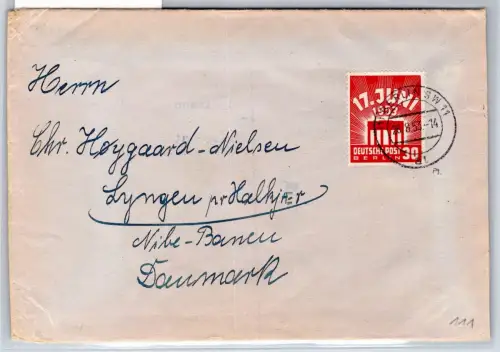 Herrn
Chr. Hoygaard-Nielsen
Lyngen pr Halkjær
Nibe-Banen
Danmark
17. JUNI
1953
DEUTSCHE POST
BERLIN 30
SW 11
8.53.-14
111